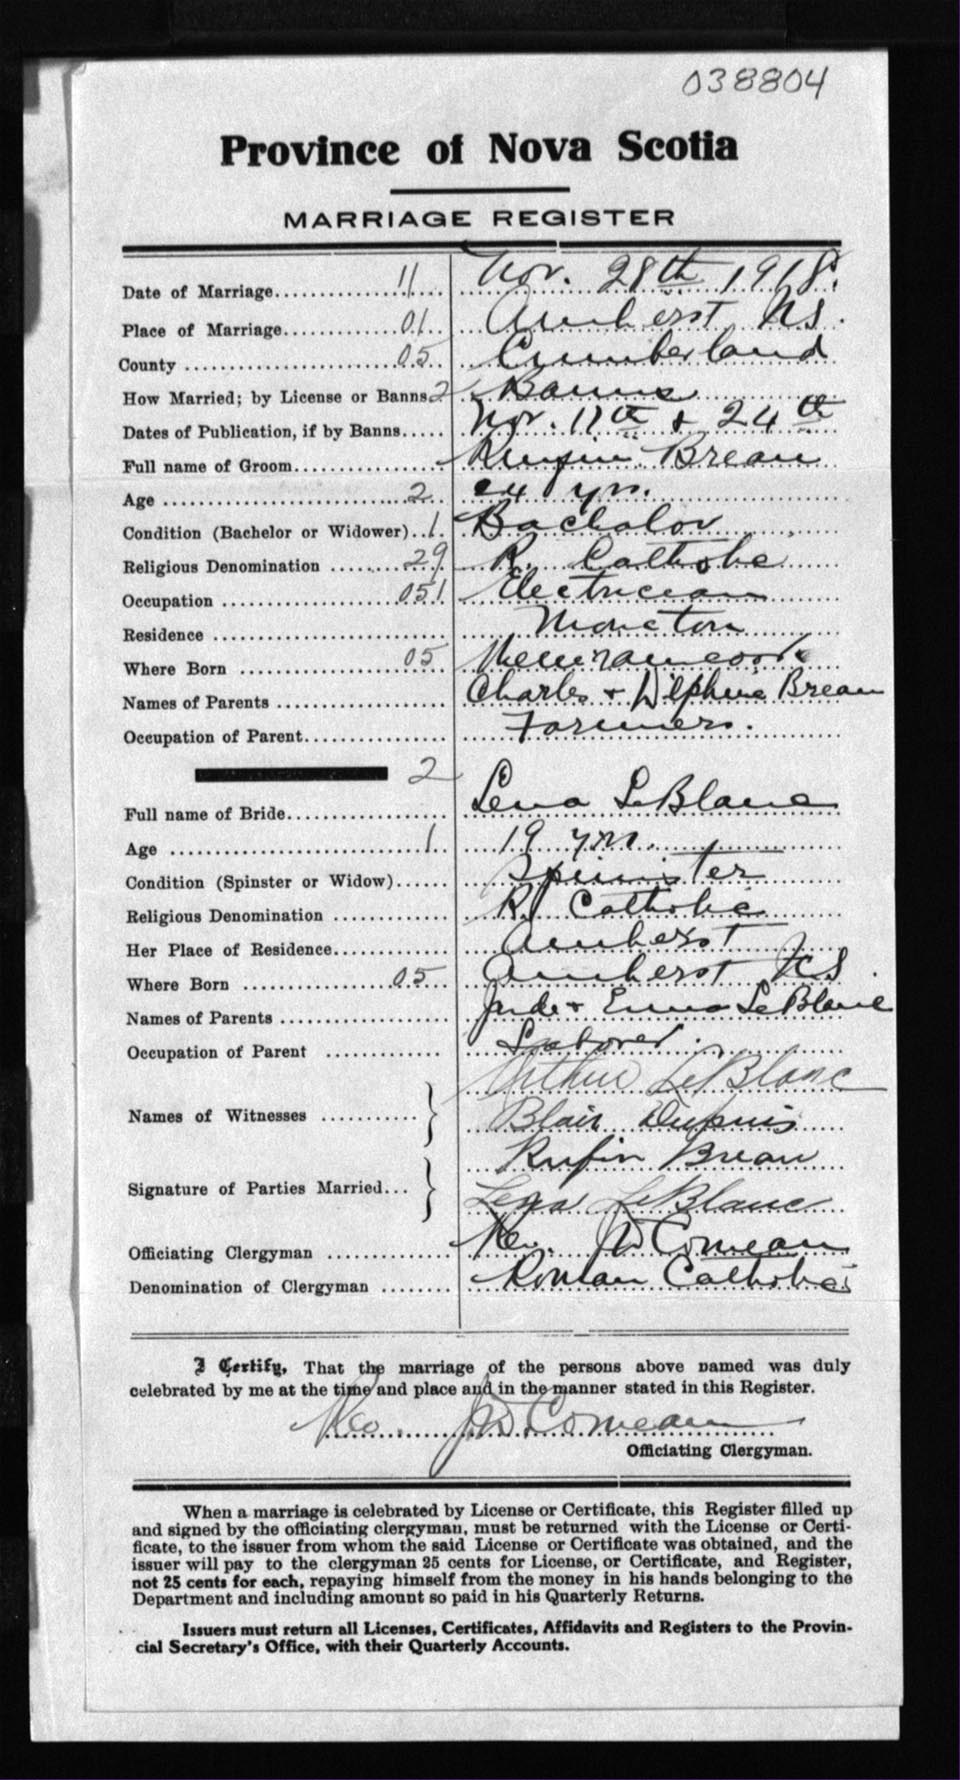 038804
Province of Nova Scotia
MARRIAGE REGISTER
Date of Marriage 11 Nov. 28th 1918.
Place of Marriage 01 Amherst NS.
County 05 Cumberland
How Married; by License or Banns 2 Banns
Dates of Publication, if by Banns Nov. 17th & 24th
Full name of Groom Breau
Age 2 24 yrs.
Condition (Bachelor or Widower) 1 Bachalor
Religious Denomination 29 R. Catholic
Occupation 051 Electrician
Residence Moncton
Where Born 05 Memramcook
Names of Parents Charles & Delphine Breau
Occupation of Parent Farmers.
2
Full name of Bride Lena LeBlanc
Age 1 19 yrs.
Condition (Spinster or Widow) Spinister
Religious Denomination R. Catholic
Her Place of Residence Amherst
Where Born 05 Amherst NS.
Names of Parents Jude & Emma LeBlanc
Occupation of Parent Laborer.
Arthur LeBlanc
Names of Witnesses Blair Dupuis
Rufin Breau
Signature of Parties Married Lena LeBlanc
Officiating Clergyman Rev. JD Comeau
Denomination of Clergyman Roman Catholic
I Certify, That the marriage of the persons above named was duly
celebrated by me at the time and place and in the manner stated in this Register.
Rev. JD Comeau
Officiating Clergyman.
When a marriage is celebrated by License or Certificate, this Register filled up
and signed by the officiating clergyman, must be returned with the License or Certi-
ficate, to the issuer from whom the said License or Certificate was obtained, and the
issuer will pay to the clergyman 25 cents for License, or Certificate, and Register,
not 25 cents for each, repaying himself from the money in his hands belonging to the
Department and including amount so paid in his Quarterly Returns.
Issuers must return all Licenses, Certificates, Affidavits and Registers to the Provin-
cial Secretary's Office, with their Quarterly Accounts.